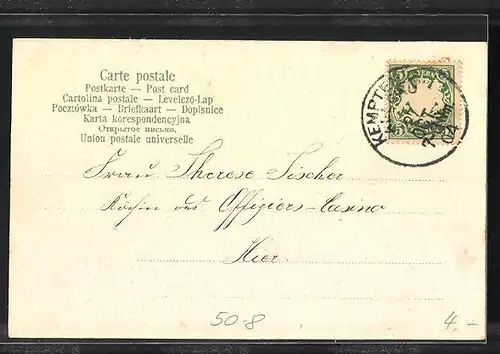 Carte postale
Postkarte — Post card
Cartolina postale — Levelező-Lap
Pocztówka — Briefkaart — Dopisnice
Karta korespondencyjna
Открытое письмо,
Union postale universelle
KEMPTEN
5
Frau Therese Fischer
Köchin des Offiziers-Casino
Hier.
50-8
4,-